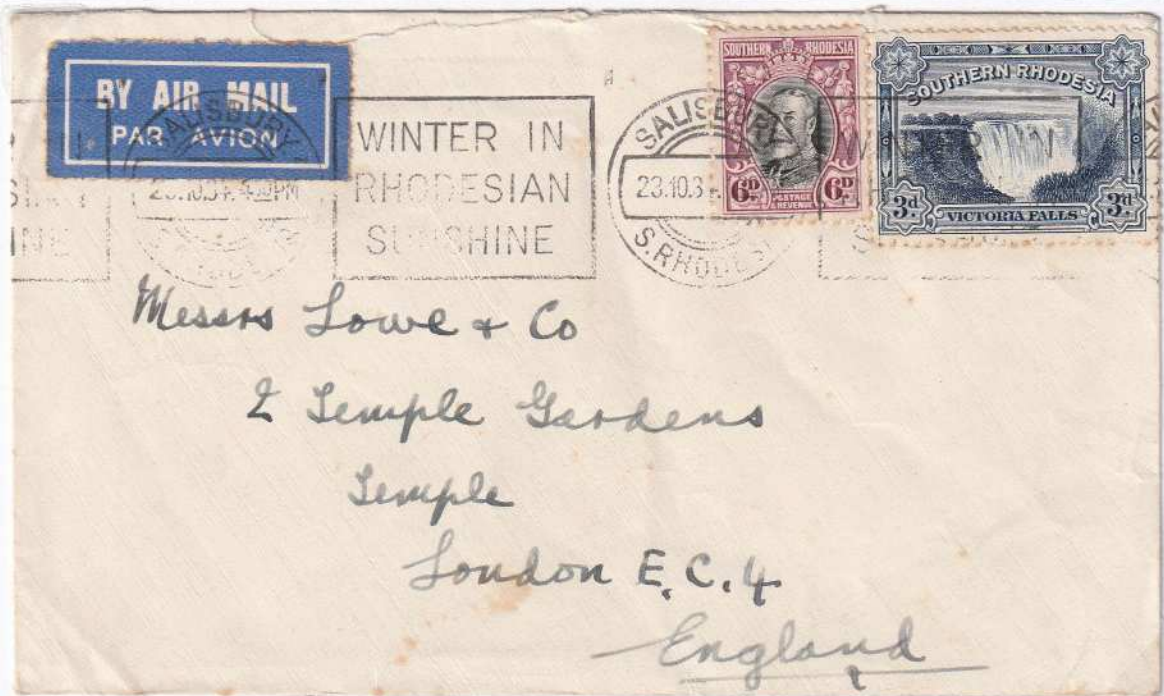 BY AIR MAIL
PAR AVION
SALISBURY
23.10.34. 4 PM
WINTER IN
RHODESIAN
SUNSHINE
SALISBURY
23.10.3
S.RHODES
SOUTHERN RHODESIA
6D 6D
POSTAGE
& REVENUE
SOUTHERN RHODESIA
3d VICTORIA FALLS 3d
Messrs Lowe & Co
2 Temple Gardens
Temple
London E.C.4
England